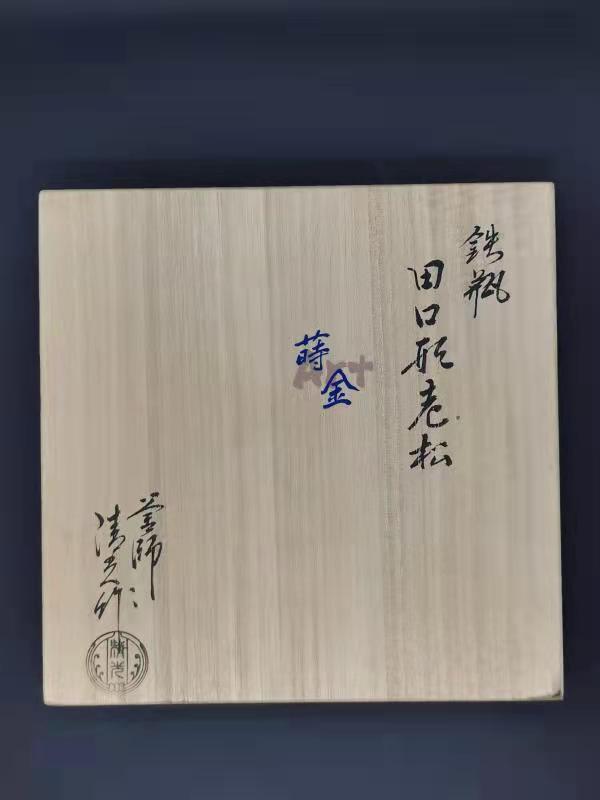 鉄瓶
田口形老松
蒔金
Art
釜師
清光作